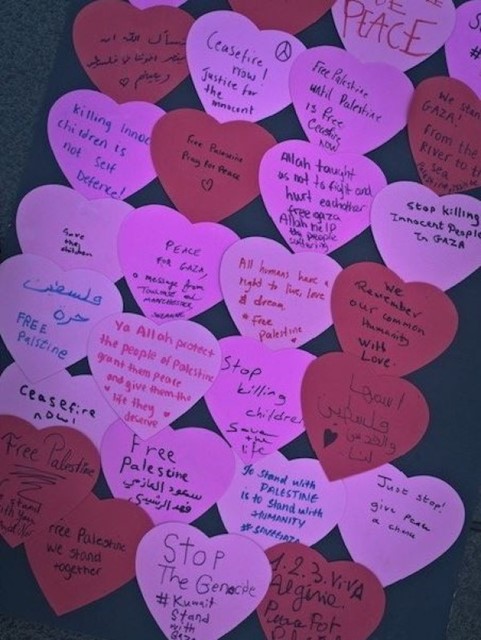 BE
PEACE
Ceasefire
now!
Justice for
the
innocent
Free Palestine
until Palestine
is Free
Ceasefire
NOW
We stand
GAZA!
From the
River to th
sea
killing Innoc
children is
not Self
Defence!
Free Palestine
Pray for Peace
Allah taught
us not to fight and
hurt eachother
free gaza
Allah help
the people
suffering
Stop killing
Innocent People
In GAZA
Save
the
children
PEACE
FOR GAZA
a message from
MANCHESTER
All humans have a
right to live, love
& dream
Free
Palestine
We
Remember
our common
Humanity
With
Love.
فلسطين
حرة
FREE
PAlSTINE
Ya Allah protect
the people of Palestine
grant them peace
and give them the
life they
deserve
Stop
killing
children
Ceasefire
now!
فلسطين
والقدس
لنا
Free Palestine
I stand
with you
Free
Palestine
To stand with
PALESTINE
is to stand with
HUMANITY
#SAVEGAZA
Just stop!
give peace
a chance
free Palestine
we stand
together
STOP
The Genocide
#Kuwait
Stand
with
GAZA
1.2.3. ViVA
Algeria.